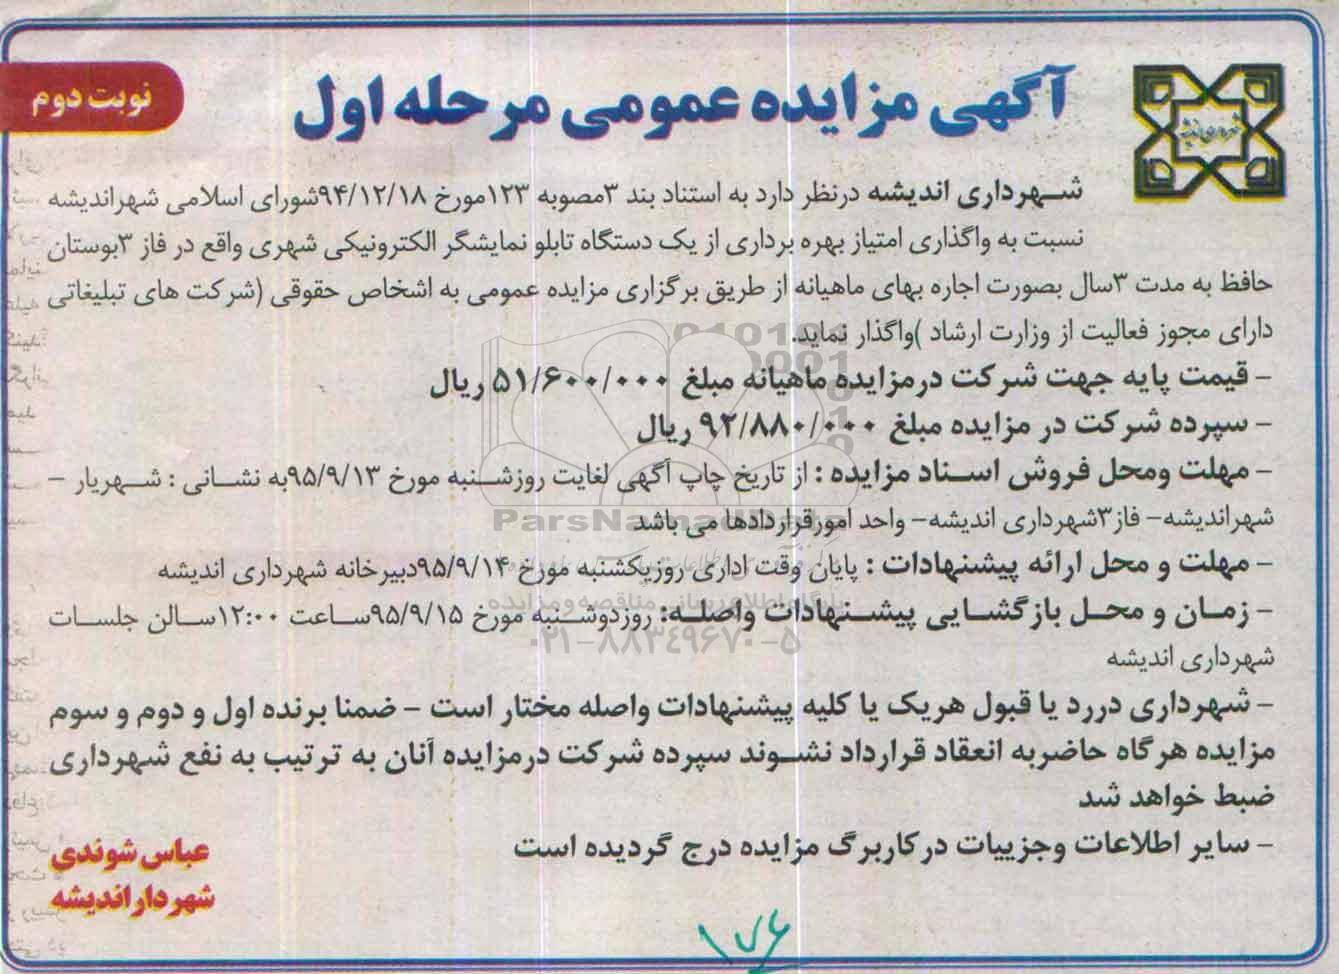 آگهی مزایده عمومی مرحله اول
نوبت دوم
شهرداری اندیشه درنظر دارد به استناد بند ۳مصوبه ۱۲۳مورخ ۹۴/۱۲/۱۸شورای اسلامی شهراندیشه
نسبت به واگذاری امتیاز بهره برداری از یک دستگاه تابلو نمایشگر الکترونیکی شهری واقع در فاز ۳بوستان
حافظ به مدت ۳سال بصورت اجاره بهای ماهیانه از طریق برگزاری مزایده عمومی به اشخاص حقوقی (شرکت های تبلیغاتی
دارای مجوز فعالیت از وزارت ارشاد )واگذار نماید.
- قیمت پایه جهت شرکت درمزایده ماهیانه مبلغ ۵۱/۶۰۰/۰۰۰ ریال
- سپرده شرکت در مزایده مبلغ ۹۲/۸۸۰/۰۰۰ ریال
- مهلت ومحل فروش اسناد مزایده : از تاریخ چاپ آگهی لغایت روزشنبه مورخ ۹۵/۹/۱۳به نشانی : شهریار -
شهراندیشه- فاز۳شهرداری اندیشه- واحد امورقراردادها می باشد
- مهلت و محل ارائه پیشنهادات : پایان وقت اداری روزیکشنبه مورخ ۹۵/۹/۱۴دبیرخانه شهرداری اندیشه
- زمان و محل بازگشایی پیشنهادات واصله: روزدوشنبه مورخ ۹۵/۹/۱۵ساعت ۱۲:۰۰سالن جلسات
شهرداری اندیشه
- شهرداری دررد یا قبول هریک یا کلیه پیشنهادات واصله مختار است - ضمنا برنده اول و دوم و سوم
مزایده هرگاه حاضربه انعقاد قرارداد نشوند سپرده شرکت درمزایده آنان به ترتیب به نفع شهرداری
ضبط خواهد شد
- سایر اطلاعات وجزییات درکاربرگ مزایده درج گردیده است
عباس شوندی
شهردار اندیشه
۱۷۶
ParsNamadData
پایگاه اطلاع رسانی مناقصه و مزایده
۰۲۱-۸۸۳۴۹۶۷۰-۵